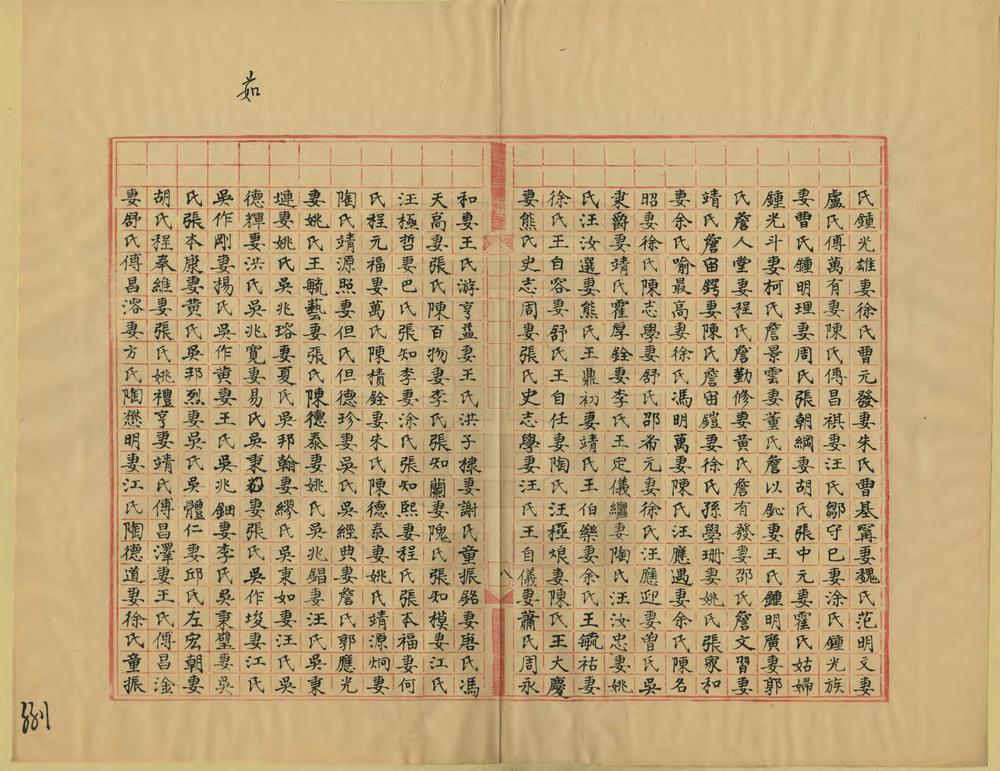 茹
氏鍾光雄妻徐氏曹元發妻朱氏曹基甯妻魏氏范明文妻
盧氏傅萬有妻陳氏傅昌祺妻汪氏鄒守巳妻涂氏鍾光族
妻曹氏鍾明理妻周氏張朝綱妻胡氏張中元妻霍氏姑婦
鍾光斗妻柯氏詹景雲妻董氏詹以鈊妻王氏鍾明廣妻郭
氏詹人堂妻程氏詹勤修妻黃氏詹有發妻邵氏詹文習妻
靖氏詹宙鍔妻陳氏詹宙鎧妻徐氏孫學珊妻姚氏張家和
妻余氏喻最高妻徐氏馮明萬妻陳氏汪應遇妻余氏陳名
昭妻徐氏陳志學妻舒氏邵希元妻徐氏汪應迎妻曾氏吳
秉爵妻靖氏霍厚銓妻李氏王定儀繼妻陶氏汪汝忠妻姚
氏汪汝選妻熊氏王鼎初妻靖氏王伯樂妻余氏王毓祜妻
徐氏王自容妻舒氏王自任妻陶氏汪極烺妻陳氏王大慶
妻熊氏史志周妻張氏史志學妻汪氏王自儀妻蕭氏周永
八
和妻王氏游亨益妻王氏洪子棣妻謝氏童振銘妻唐氏馮
天高妻張氏陳百物妻李氏張知蘭妻隗氏張知模妻江氏
汪極哲妻巴氏張知李妻涂氏張知熙妻程氏張本福妻何
氏程元福妻萬氏陳積銓妻朱氏陳德泰妻姚氏靖源炯妻
陶氏靖源照妻但氏但德珍妻吳氏吳經典妻詹氏郭應光
妻姚氏王毓藝妻張氏陳德泰妻姚氏吳兆錩妻汪氏吳秉
堜妻姚氏吳兆瑢妻夏氏吳邦翰妻繆氏吳秉如妻汪氏吳
德輝妻洪氏吳兆寬妻易氏吳秉妻張氏吳作埈妻江氏
吳作剛妻楊氏吳作黃妻王氏吳兆鈿妻李氏吳秉璧妻吳
氏張本康妻黃氏吳邦烈妻吳氏吳體仁妻邱氏左宏朝妻
胡氏程奉維妻張氏姚禮亨妻靖氏傅昌澤妻王氏傅昌淦
妻舒氏傅昌溶妻方氏陶懋明妻江氏陶德道妻徐氏童振